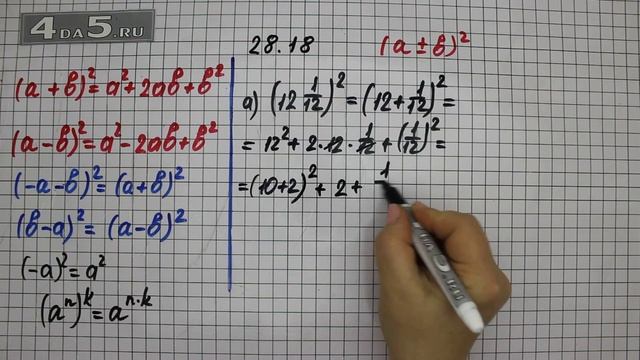 4DA5.RU
28.18
(a ± b)²
(a + b)² = a² + 2ab + b²
(a - b)² = a² - 2ab + b²
(-a - b)² = (a + b)²
(b - a)² = (a - b)²
(-a)² = a²
(aⁿ)ᵏ = aⁿ·ᵏ
а) (12 1/12)² = (12 + 1/12)² =
= 12² + 2 · 12 · 1/12 + (1/12)² =
= (10+2)² + 2 + 1